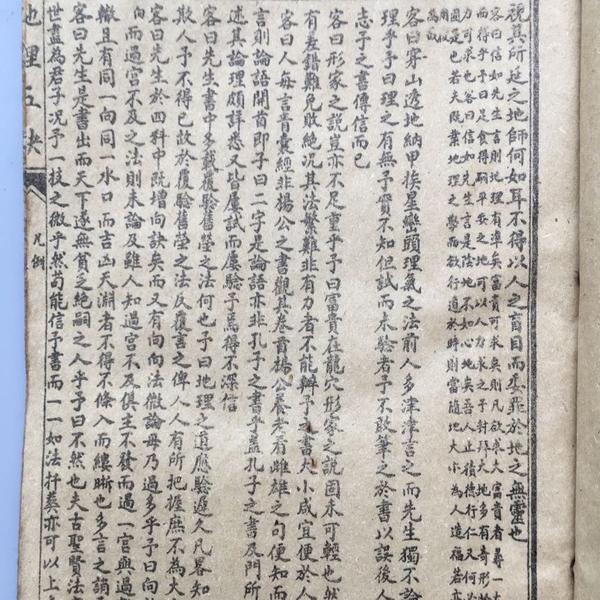 視其所延之地師何如耳不得以人之盲目而委罪於地之無靈也
客曰信如先生言則地理有準矣富貴可求矣則凡欲求大富貴者尋一大
而得乎予曰足食得嗣平妥之地可以人力求之予封拜大地多有奇形
力可求也容曰信如先生言是陰地不如心地矣吾人止積德行仁又何
圖是也若夫既業地理之學而欲行道於時則當隨地大小為人造福若亦
客曰穿山透地納甲挨星巒頭理氣之法前人多津津言之而先生獨不論
理乎予曰理之有無予實不知但試而未驗者予不敢筆之於書以誤後人
志予之書傳信而已
客曰形家之說豈亦不足重乎予曰富貴在龍穴形家之說固未可輕也然
有差錯難免敗絕况其法繁難非有力者不能辦予之書大小咸宜便於人
客曰人每言青囊經非楊公之書觀其卷首楊公養老看雌雄之句便知而
言則論語開首即子曰二字是論語亦非孔子之書乎蓋孔子之書及門所
述其論理頗詳悉又皆屢試而屢驗予焉得不深信
客曰先生書中多載覆驗舊塋之法何也予曰地理之道應驗遲久凡畧知
欺人予不得已故於覆驗舊塋之法反覆言之俾人人有所把握庶不為大
客曰先生於四科中既增向訣矣而又有向向法微論毋乃過多乎予曰向
向而過宮不及之法則未論及雖人知過宮不及俱主不發而過一宮與過
轍且有同一向同一水口而吉凶天淵者不得不條入而縷晰也多言之誚
客曰先生是書出而天下遂無貧乏絕嗣之人乎予曰不然也夫古聖賢法
世盡為君子况予一技之微乎然苟能信予書而一一如法扦葬亦可以上
地理五訣
凡例